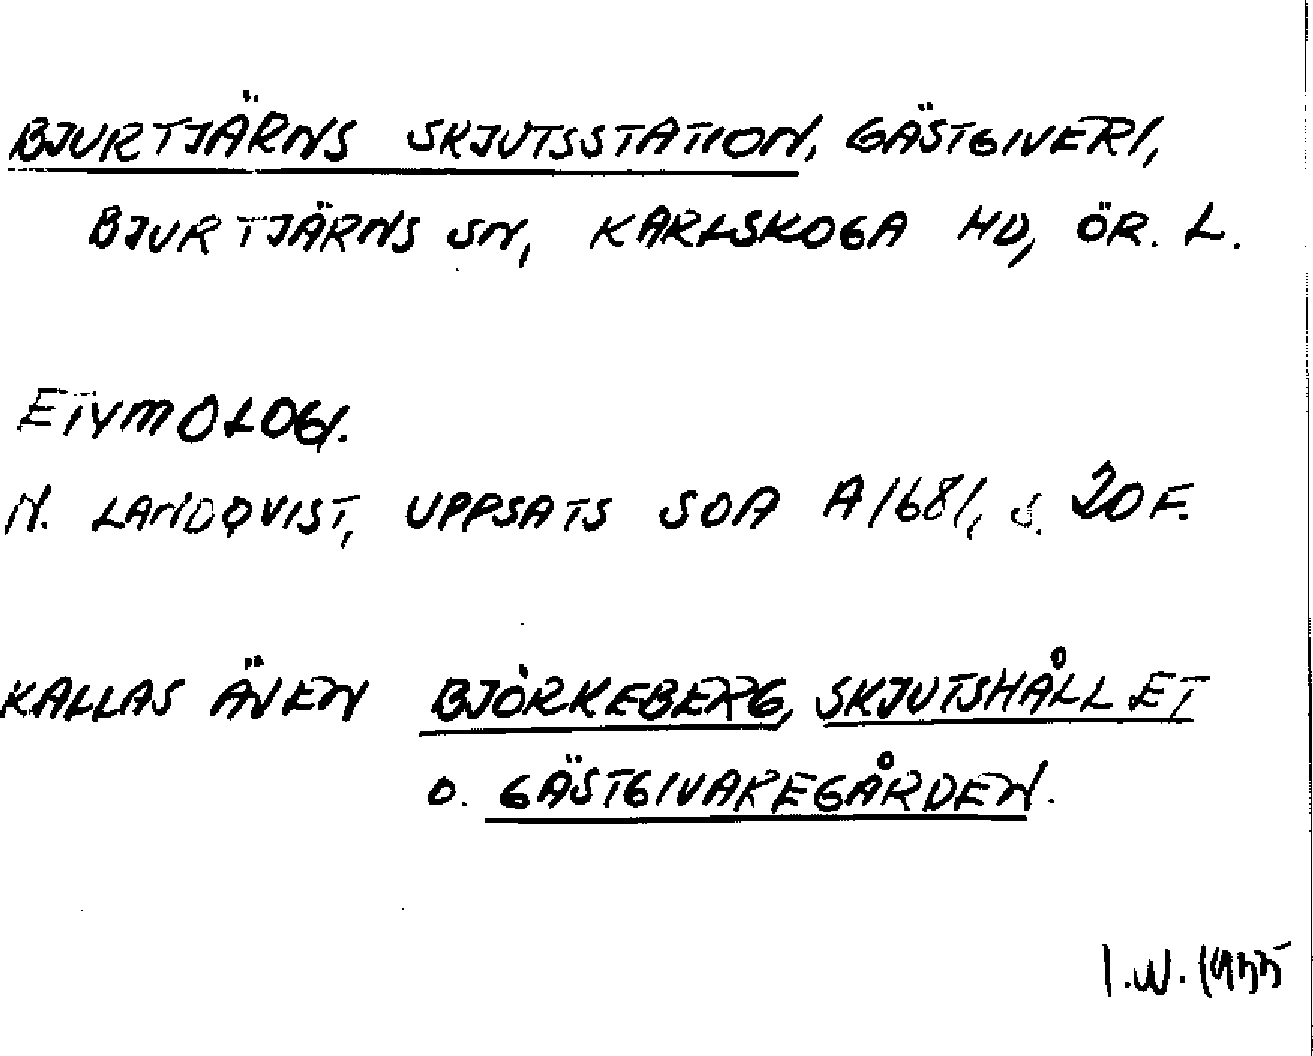 BJURTJÄRNS SKJUTSSTATION, GÄSTGIVERI,
BJURTJÄRNS SN, KARLSKOGA HD, ÖR. L.
ETYMOLOGI.
N. LANDQVIST, UPPSATS SOA A1681, S. 20 F.
KALLAS ÄVEN BJÖRKEBERG, SKJUTSHÅLLET
O. GÄSTGIVAREGÅRDEN.
I.W. 1955